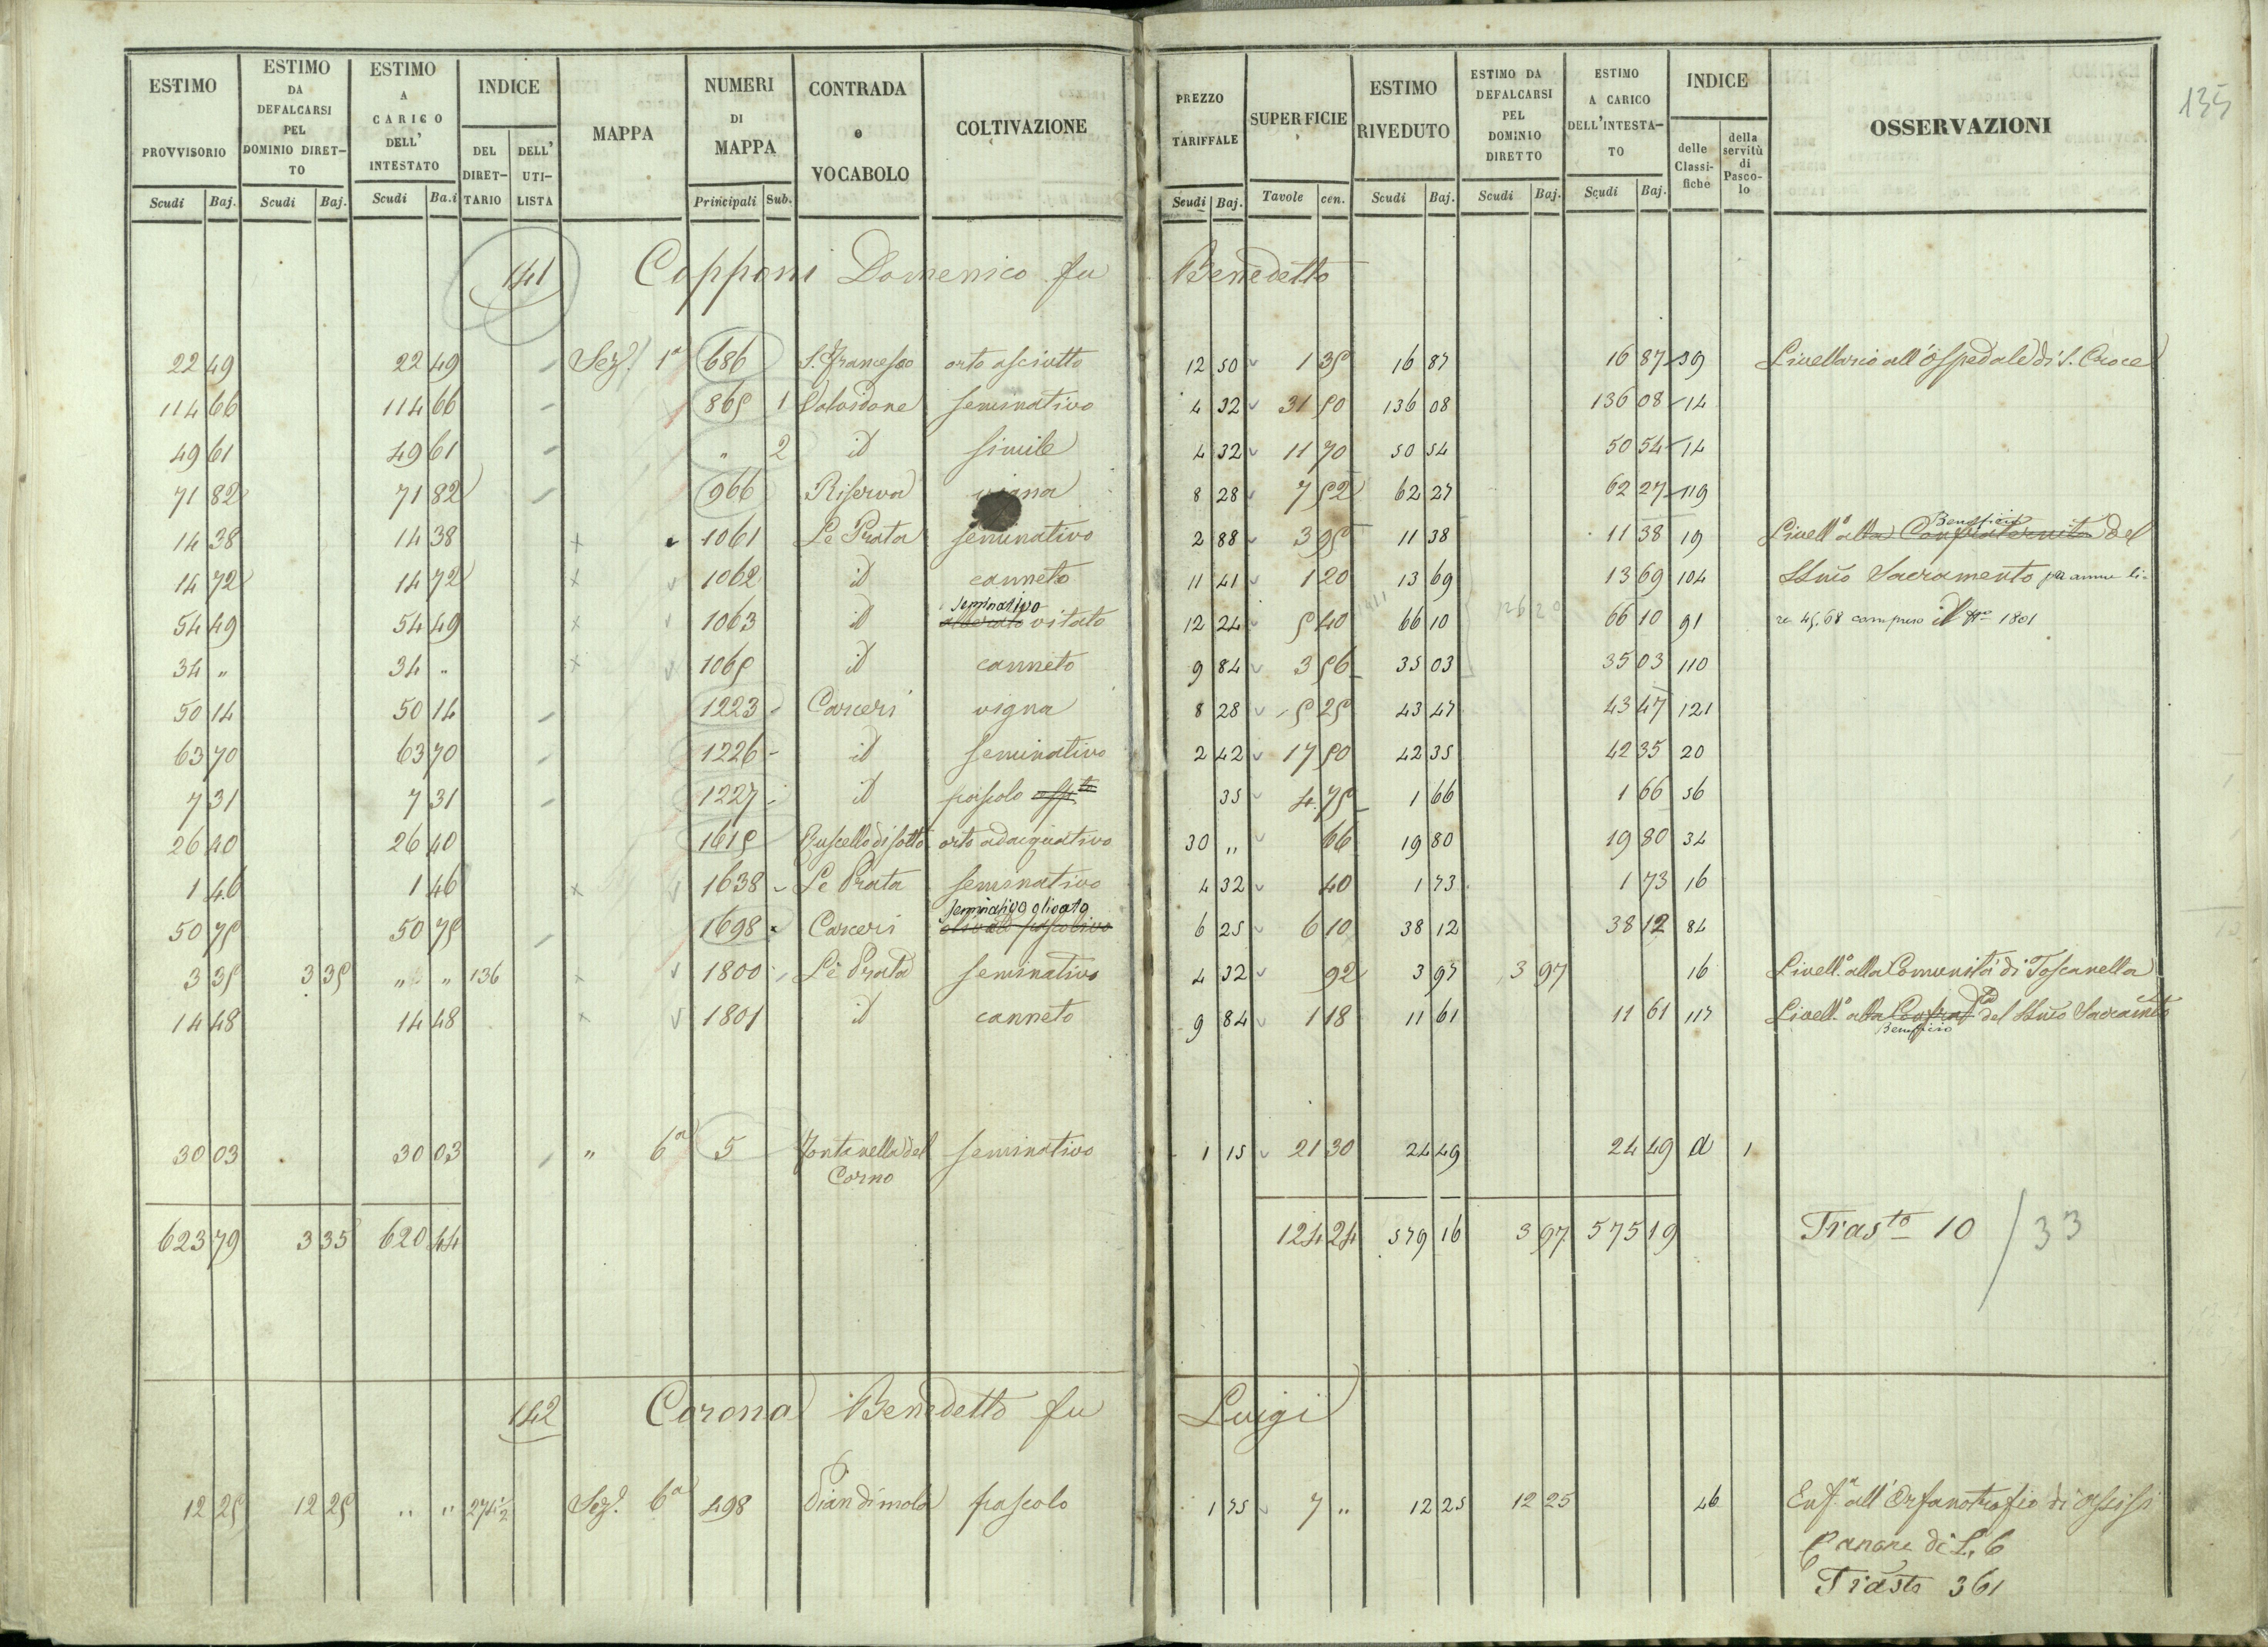 135
ESTIMO PROVVISORIO | ESTIMO DA DEFALCARSI PEL DOMINIO DIRETTO | ESTIMO A CARICO DELL' INTESTATO | INDICE | MAPPA | NUMERI DI MAPPA | CONTRADA o VOCABOLO | COLTIVAZIONE | PREZZO TARIFFALE | SUPERFICIE | ESTIMO RIVEDUTO | ESTIMO DA DEFALCARSI PEL DOMINIO DIRETTO | ESTIMO A CARICO DELL'INTESTATO | INDICE | OSSERVAZIONI
DEL DIRETTARIO | DELL' UTILISTA | delle Classifiche | della servitù di Pascolo
Scudi | Baj. | Scudi | Baj. | Scudi | Ba.i | Principali | Sub. | Scudi | Baj. | Tavole | cen. | Scudi | Baj. | Scudi | Baj. | Scudi | Baj.
141 Copponi Domenico fu Benedetto
22 49 | 22 49 | Sez. 1a | 686 | S. Francesco | orto asciutto | 12 50 | 1 35 | 16 87 | 16 87 | 39 | Livellario all'Ospedale di S. Croce
114 66 | 114 66 | 865 1 | Valvidone | seminativo | 4 32 | 31 50 | 136 08 | 136 08 | 14
49 61 | 49 61 | " 2 | id | simile | 4 32 | 11 70 | 50 54 | 50 54 | 14
71 82 | 71 82 | 966 | Riserva | vigna | 8 28 | 7 52 | 62 27 | 62 27 | 119
14 38 | 14 38 | 1061 | Le Prata | seminativo | 2 88 | 3 95 | 11 38 | 11 38 | 19 | Livell.o alla Confraternita Beneficio del
14 72 | 14 72 | 1062 | id | canneto | 11 41 | 1 20 | 13 69 | 13 69 | 104 | SSmo Sacramento per annue li-
54 49 | 54 49 | 1063 | id | alberato seminativo vitato | 12 24 | 5 40 | 66 10 | 126 20 | 66 10 | 91 | re 45.68 compreso il No 1801
34 " | 34 " | 1065 | id | canneto | 9 84 | 3 56 | 35 03 | 35 03 | 110
50 14 | 50 14 | 1223 | Carceri | vigna | 8 28 | 5 25 | 43 47 | 43 47 | 121
63 70 | 63 70 | 1226 | id | seminativo | 2 42 | 17 50 | 42 35 | 42 35 | 20
7 31 | 7 31 | 1227 | id | pascolo | 35 | 4 75 | 1 66 | 1 66 | 56
26 40 | 26 40 | 1615 | Ruscello di sotto | orto adacquativo | 30 " | 66 | 19 80 | 19 80 | 34
1 46 | 1 46 | 1638 | Le Prata | seminativo | 4 32 | 40 | 1 73 | 1 73 | 16
50 75 | 50 75 | 1698 | Carceri | olivato pascolivo seminativo olivato | 6 25 | 6 10 | 38 12 | 38 12 | 84
3 35 | 3 35 | " " | 136 | 1800 | Le Prata | seminativo | 4 32 | 92 | 3 97 | 3 97 | 16 | Livell.o alla Comunità di Toscanella
14 48 | 14 48 | 1801 | id | canneto | 9 84 | 1 18 | 11 61 | 11 61 | 117 | Livell.o alla Confrat.ta Beneficio del SSmo Sacramto
30 03 | 30 03 | " 6a | 5 | Fontanella del Corno | seminativo | 1 15 | 21 30 | 24 49 | 24 49 | a | 1
623 79 | 3 35 | 620 44 | 124 24 | 579 16 | 3 97 | 575 19 | Trasto 10 / 33
142 Corona Benedetto fu Luigi
12 25 | 12 25 | " " | 274 1/2 | Sez. 6a | 498 | Pian di mola | pascolo | 1 75 | 7 " | 12 25 | 12 25 | 46 | Enf.a all'Orfanotrofio di Assisi
Canone di L. 6
Trasto 361